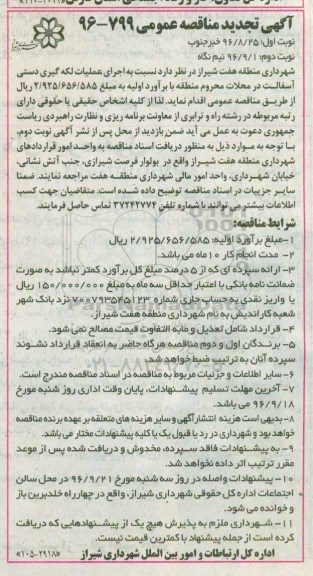 آگهی تجدید مناقصه عمومی ۷۹۹-۹۶
نوبت اول: ۹۶/۸/۲۵ خبرجنوب
نوبت دوم: ۹۶/۹/۱ نیم نگاه
شهرداری منطقه هفت شیراز در نظر دارد نسبت به اجرای عملیات لکه گیری دستی
آسفالت در محلات محروم منطقه با برآورد اولیه به مبلغ ۲/۹۲۵/۶۵۶/۵۸۵ ریال
از طریق مناقصه عمومی اقدام نماید. لذا از کلیه اشخاص حقیقی یا حقوقی دارای
رتبه مربوطه در رشته راه و ترابری از معاونت برنامه ریزی و نظارت راهبردی ریاست
جمهوری دعوت به عمل می آید ضمن بازدید از محل پس از نشر آگهی نوبت دوم،
با توجه به موارد ذیل به منظور دریافت اسناد مناقصه به واحد امور قراردادهای
شهرداری منطقه هفت شیراز واقع در بولوار فرصت شیرازی، جنب آتش نشانی،
خیابان شهرداری، واحد امور مالی شهرداری منطقه هفت مراجعه نمایند. ضمنا
سایر جزییات در اسناد مناقصه توضیح داده شده است. متقاضیان جهت کسب
اطلاعات بیشتر می توانند با شماره تلفن ۳۷۲۴۲۷۷۴ تماس حاصل فرمایند.
شرایط مناقصه:
۱-مبلغ برآورد اولیه: ۲/۹۲۵/۶۵۶/۵۸۵ ریال
۲- مدت انجام کار ۱۰ ماه می باشد.
۳- ارائه سپرده ای که از ۵ درصد مبلغ کل برآورد کمتر نباشد به صورت
ضمانت نامه بانکی با اعتبار حداقل سه ماه به مبلغ ۱۵۰/۰۰۰/۰۰۰ ریال
یا واریز نقدی به حساب جاری شماره ۷۰۰۷۹۳۵۴۵۱۲۳ نزد بانک شهر
شعبه کاراندیش به نام شهرداری منطقه هفت شیراز.
۴- قرارداد شامل تعدیل و مابه التفاوت قیمت مصالح نمی شود.
۵- برندگان اول و دوم مناقصه هرگاه حاضر به انعقاد قرارداد نشوند
سپرده آنان به ترتیب ضبط خواهد شد.
۶- سایر اطلاعات و جزئیات مربوط به مناقصه در اسناد مناقصه مندرج است.
۷- آخرین مهلت تسلیم پیشنهادات، پایان وقت اداری روز شنبه مورخ
۹۶/۹/۱۸ می باشد.
۸-بدیهی است هزینه انتشار آگهی و سایر هزینه های متعلقه بر عهده برنده مناقصه
خواهد بود و شهرداری در رد یا قبول یک یا کلیه پیشنهادات مختار می باشد.
۹- به پیشنهادات فاقد سپرده، مخدوش و دریافت شده پس از موعد
مقرر ترتیب اثر داده نخواهد شد.
۱۰- پیشنهادات واصله در روز سه شنبه مورخ ۹۶/۹/۲۱ در محل سالن
اجتماعات اداره کل حقوقی شهرداری شیراز، واقع در چهارراه خلدبرین باز
و خوانده می شود.
۱۱- شهرداری ملزم به پذیرش هیچ یک از پیشنهادهایی که دریافت
کرده است از جمله پیشنهاد با کمترین قیمت نیست.
اداره کل ارتباطات و امور بین الملل شهرداری شیراز
«۱۰۵-۲۹۱۸»